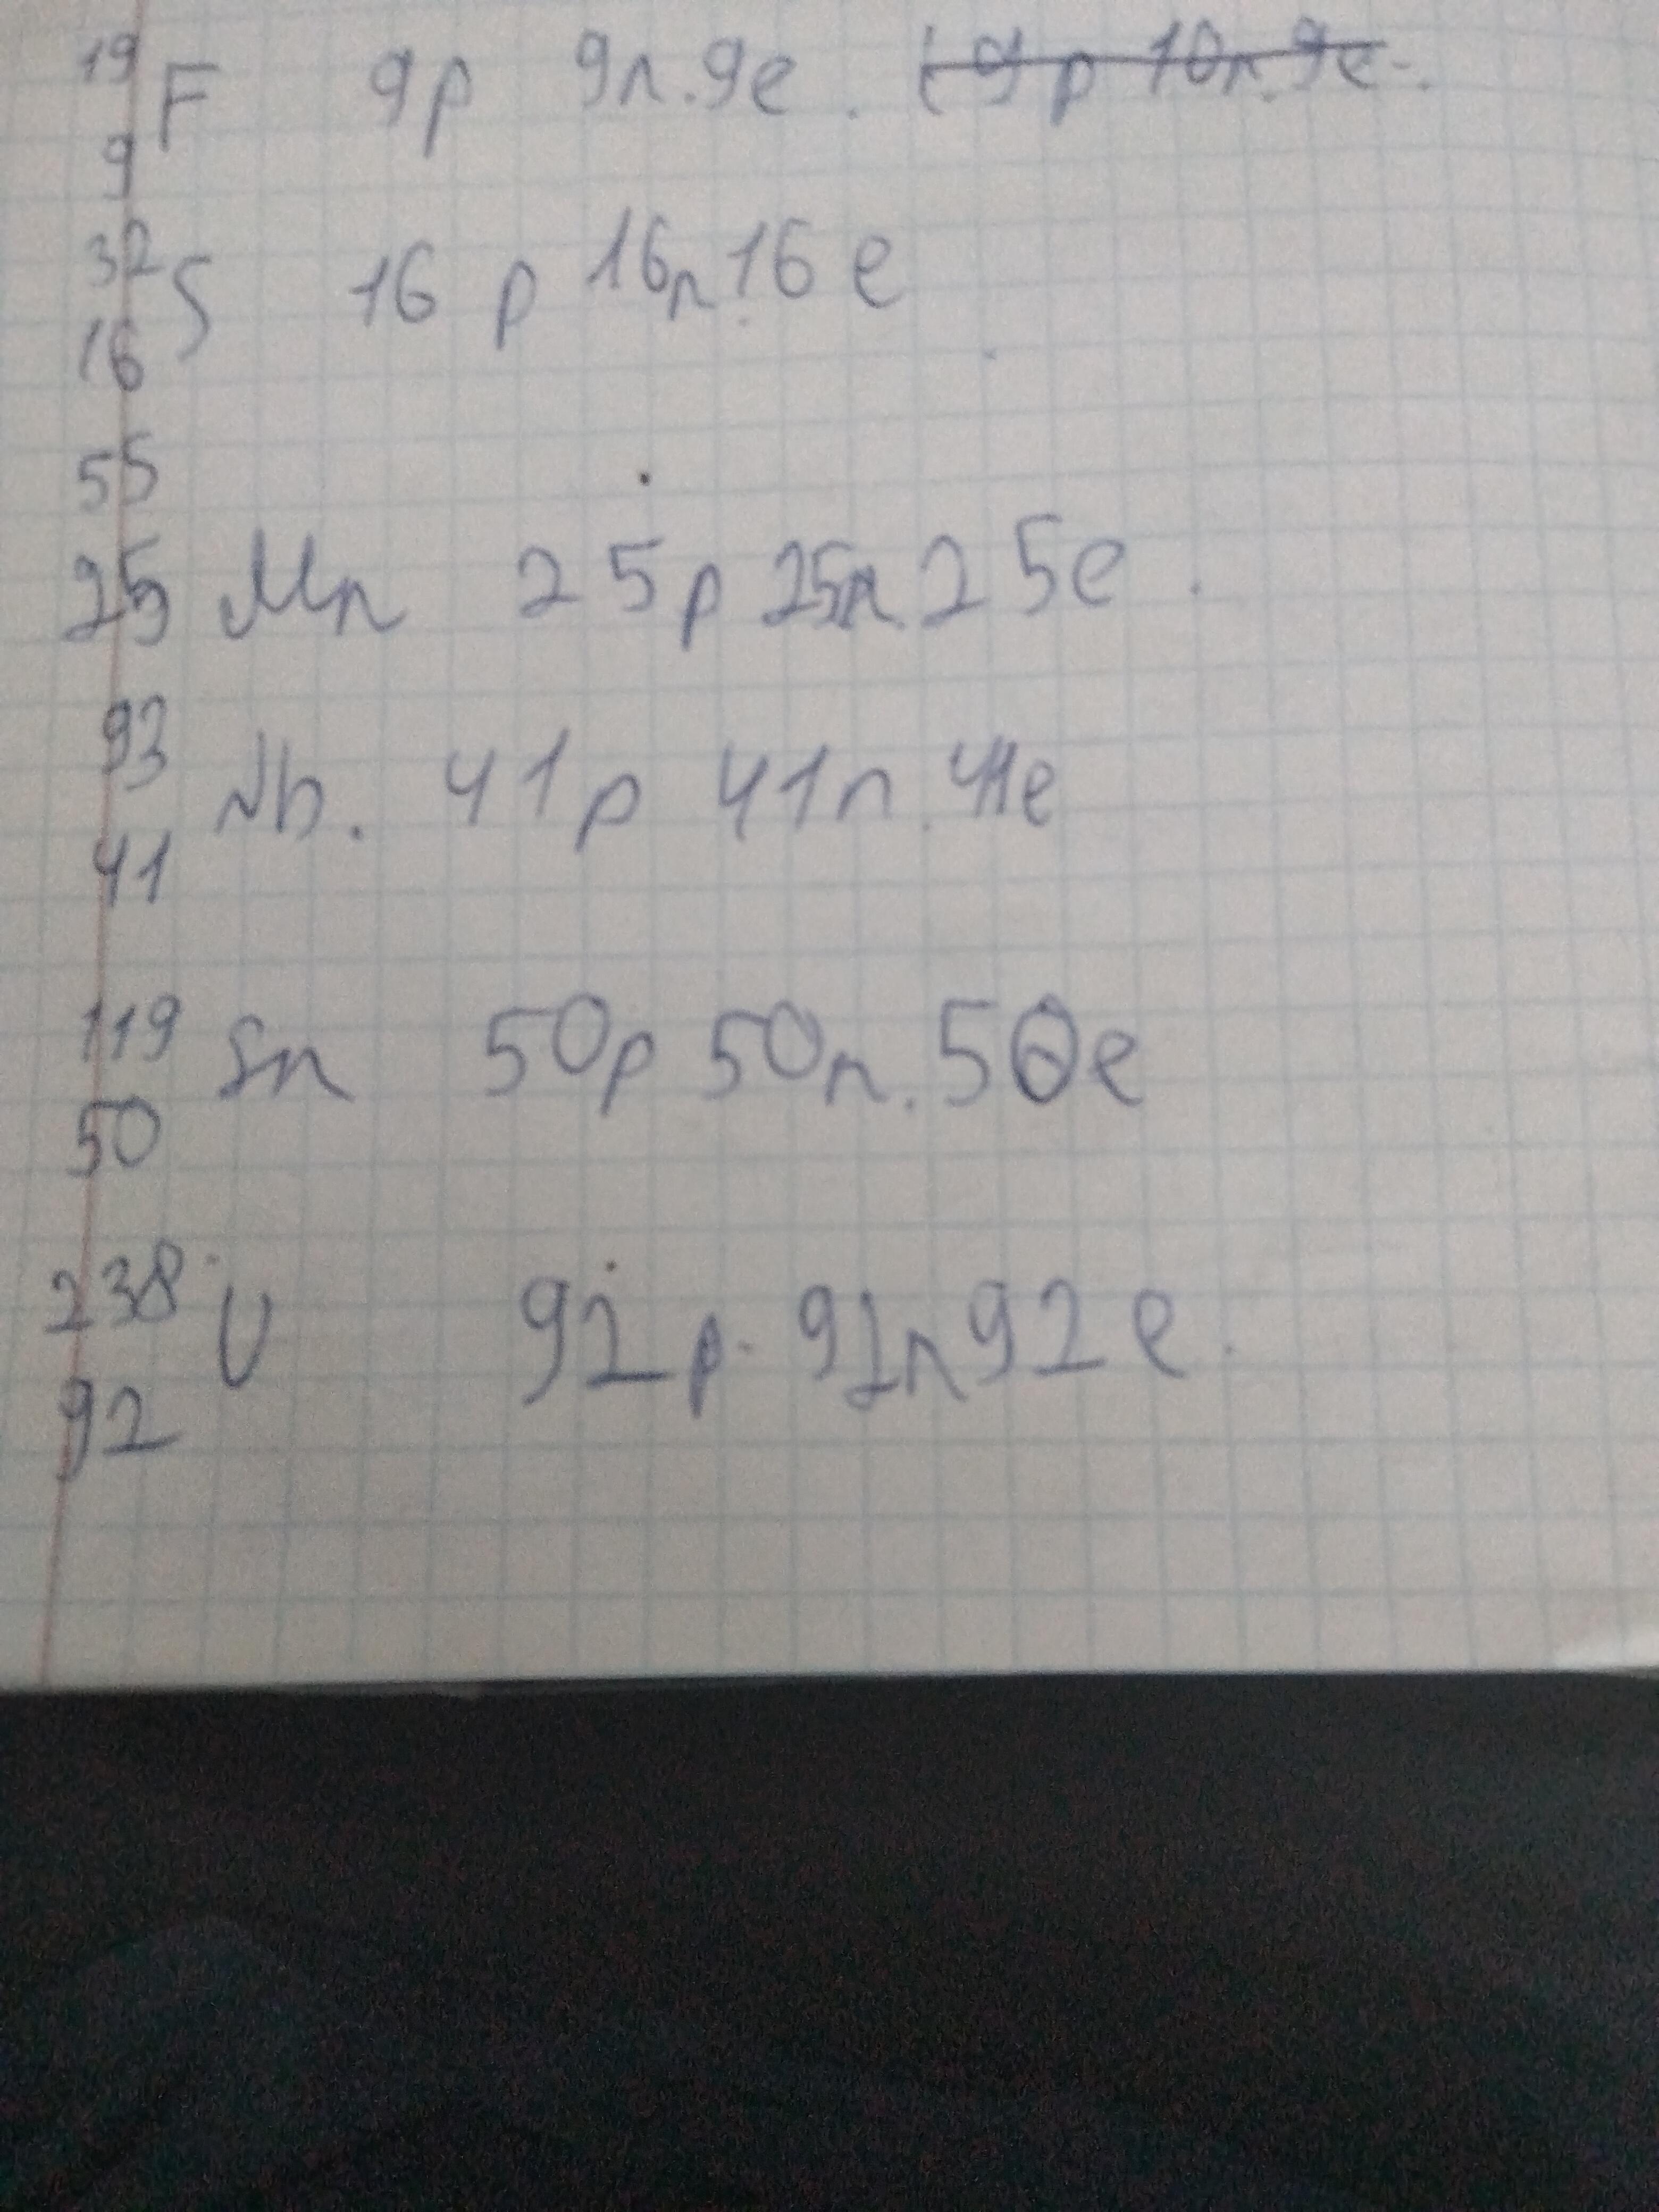 19 F 9p 9n. 9e. (9p 10n. 9e.
9
32 S 16 p 16n. 16 e
16
55
25 Mn 25p 25n. 25e.
93
Nb. 41p 41n. 41e
41
119 Sn 50p 50n. 50e
50
238 U 92p. 92n 92e.
92